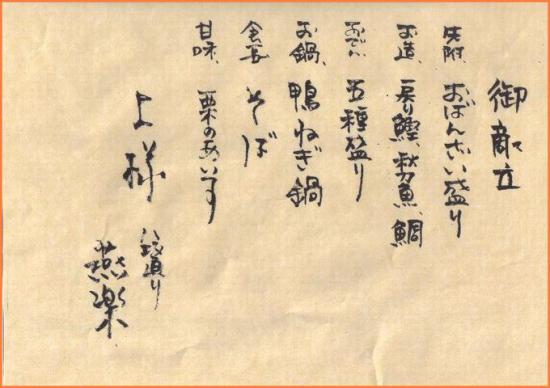 御献立
先附 おばんざい盛り
お造 戻り鰹、秋刀魚、鯛
おでん 五種盛り
お鍋 鴨ねぎ鍋
食事 そば
甘味 栗のあいす
上様
通り
燕楽